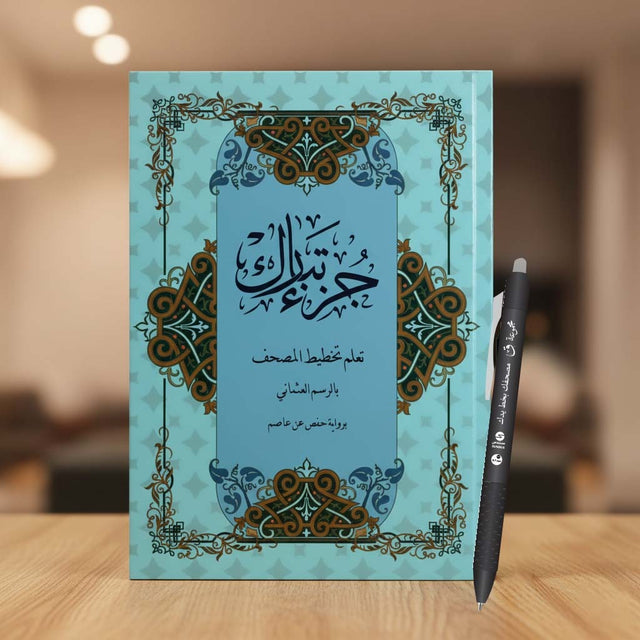 جُزْءُ تَبَارَكَ
تعلم تخطيط المصحف
بالرسم العثماني
برواية حفص عن عاصم
مجموعة ق مصحفك بخط يدك